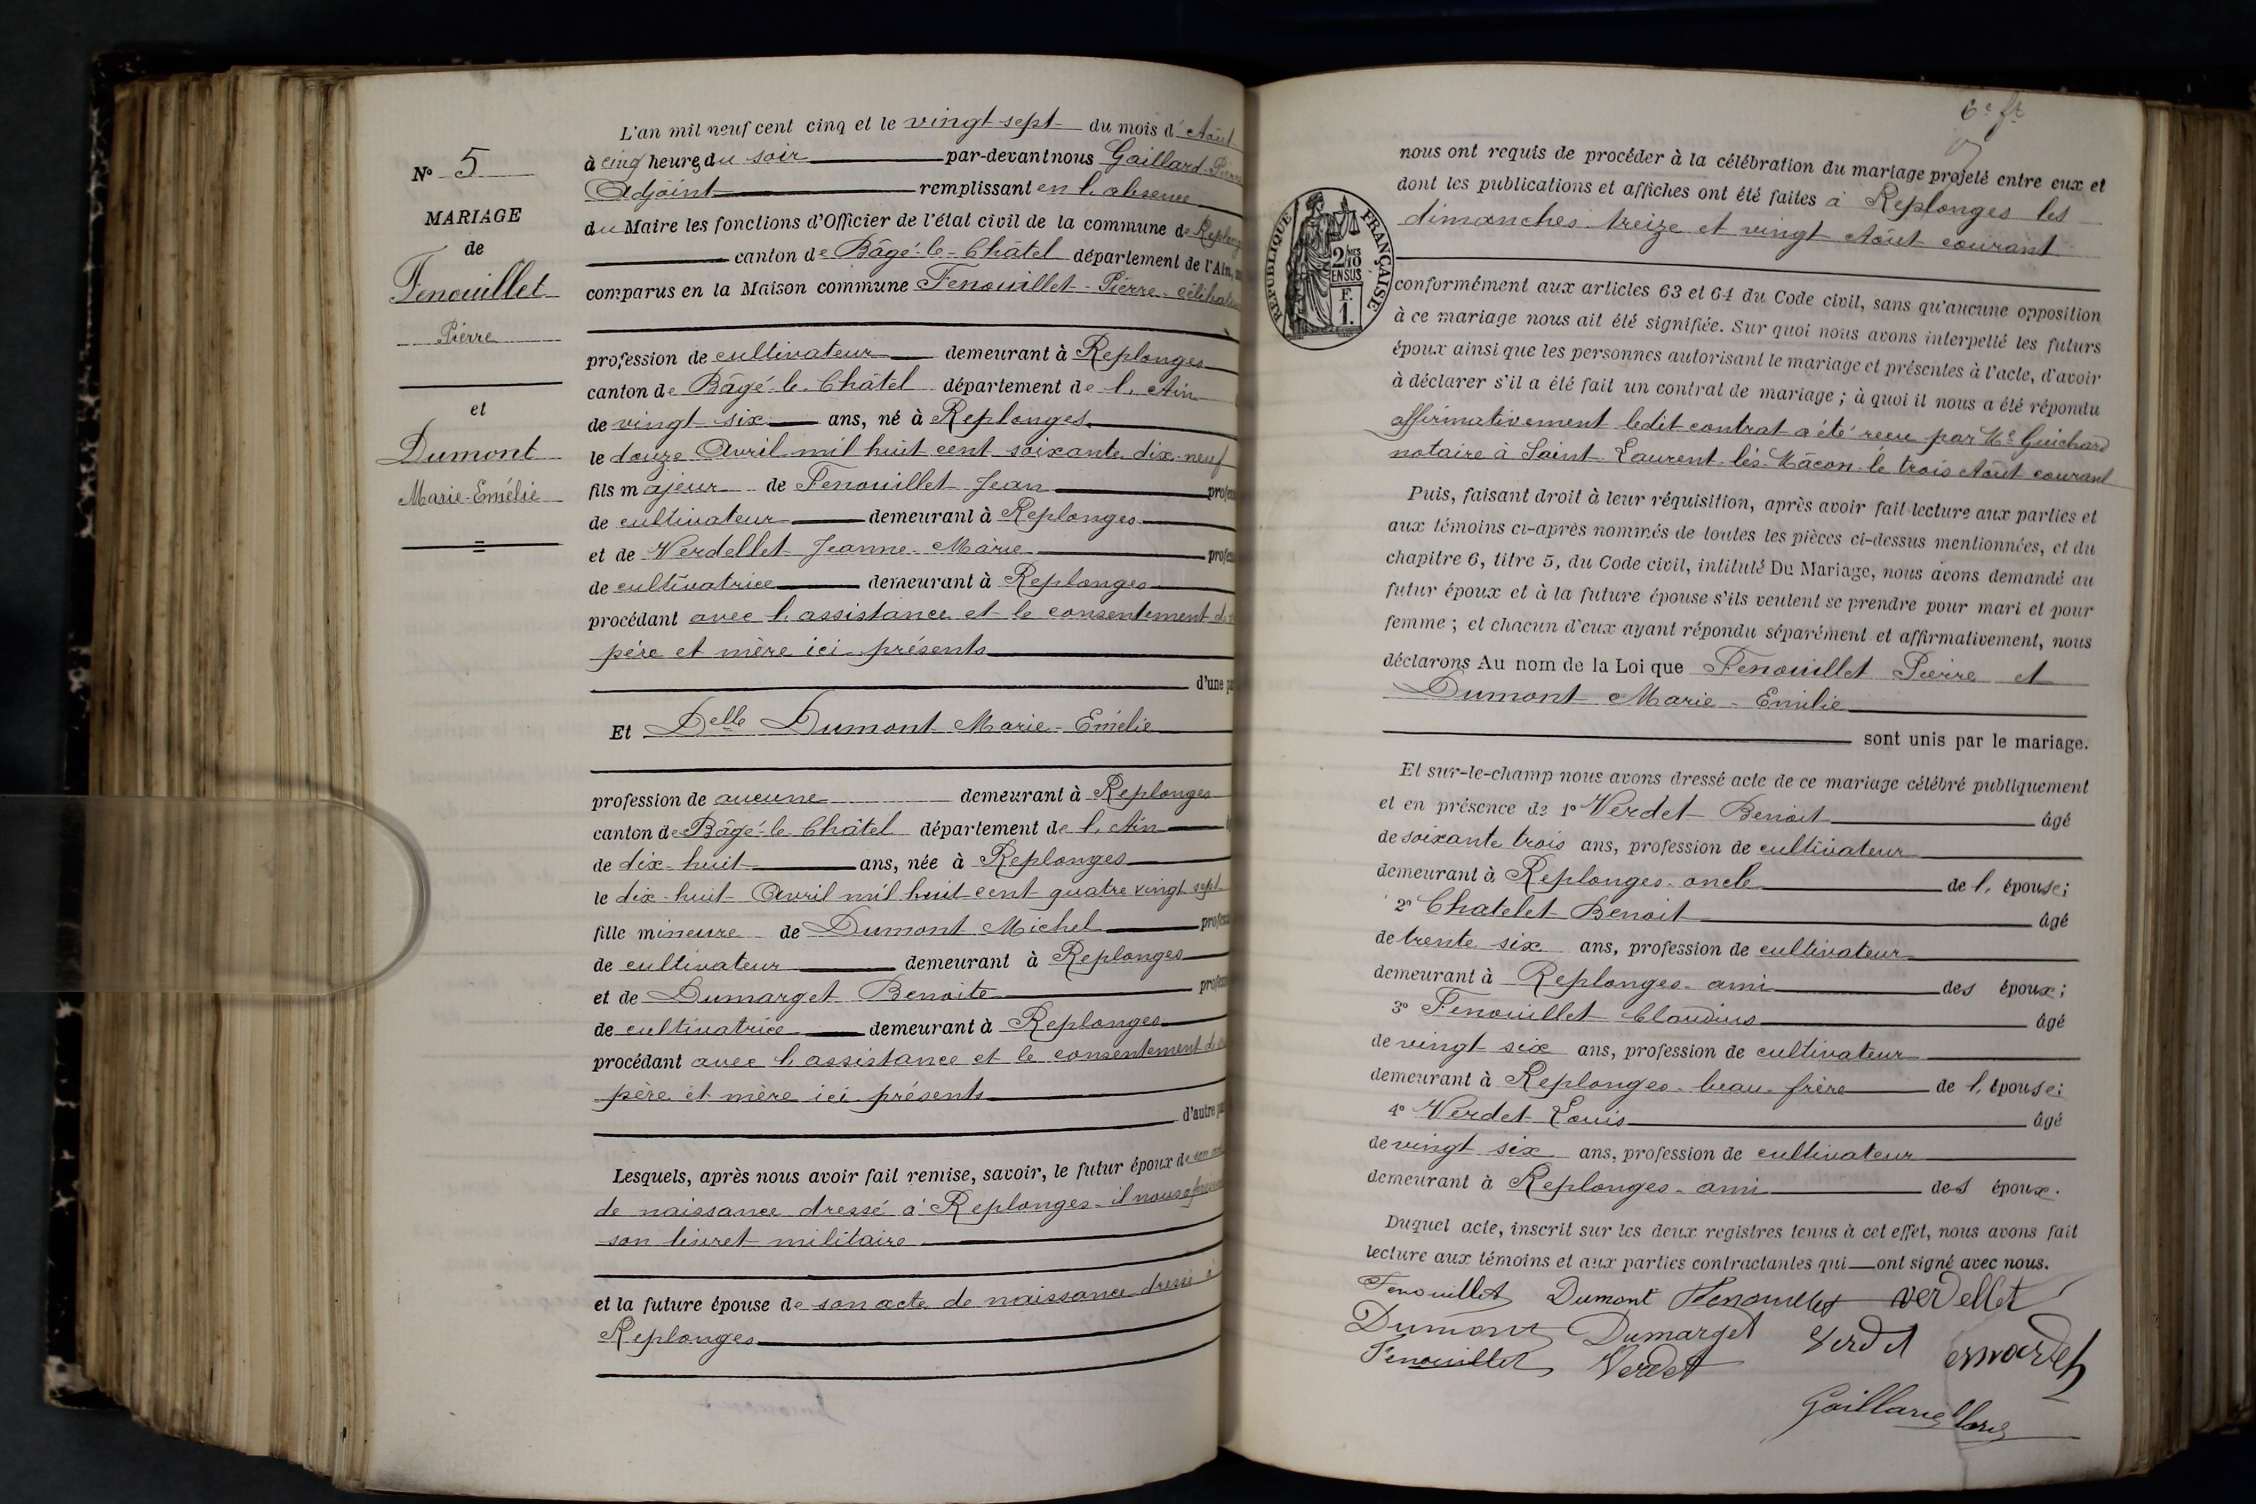 L'an mil neuf cent cinq et le vingt-sept du mois d'Août
à cinq heures du soir par-devant nous Gaillard Pierre
Adjoint remplissant en l'absence
du Maire les fonctions d'Officier de l'état civil de la commune de
canton de Bâgé-le-Châtel département de l'Ain,
comparus en la Maison commune Fenouillet Pierre
profession de cultivateur demeurant à Replonges
canton de Bâgé-le-Châtel département de l'Ain
de vingt-six ans, né à Replonges
le douze Avril mil huit cent soixante dix-neuf
fils majeur de Fenouillet Jean
de cultivateur demeurant à Replonges
et de Verdellet Jeanne-Marie
de cultivatrice demeurant à Replonges
procédant avec l'assistance et le consentement
père et mère ici présents
d'une
Et Delle Dumont Marie-Emélie
profession de aucune demeurant à Replonges
canton de Bâgé-le-Châtel département de l'Ain
de dix-huit ans, née à Replonges
le dix-huit Avril mil huit cent quatre vingt sept
fille mineure de Dumont Michel
de cultivateur demeurant à Replonges
et de Dumarget Benoite
de cultivatrice demeurant à Replonges
procédant avec l'assistance et le consentement
père et mère ici présents
d'autre
Lesquels, après nous avoir fait remise, savoir, le futur époux de son
de naissance dressé à Replonges il nous a
son livret militaire
et la future épouse de son acte de naissance dressé à
Replonges
No 5
MARIAGE
de
Fenouillet
Pierre
et
Dumont
Marie-Emélie
6e ft
nous ont requis de procéder à la célébration du mariage projeté entre eux et
dont les publications et affiches ont été faites à Replonges les
dimanches treize et vingt Août courant
RÉPUBLIQUE FRANÇAISE
2/10
EN SUS
F.
1.
conformément aux articles 63 et 64 du Code civil, sans qu'aucune opposition
à ce mariage nous ait été signifiée. Sur quoi nous avons interpellé les futurs
époux ainsi que les personnes autorisant le mariage et présentes à l'acte, d'avoir
à déclarer s'il a été fait un contrat de mariage ; à quoi il nous a été répondu
affirmativement ledit contrat a été reçu par Me Guichard
notaire à Saint-Laurent-lès-Mâcon le trois Août courant
Puis, faisant droit à leur réquisition, après avoir fait lecture aux parties et
aux témoins ci-après nommés de toutes les pièces ci-dessus mentionnées, et du
chapitre 6, titre 5, du Code civil, intitulé Du Mariage, nous avons demandé au
futur époux et à la future épouse s'ils veulent se prendre pour mari et pour
femme ; et chacun d'eux ayant répondu séparément et affirmativement, nous
déclarons Au nom de la Loi que Fenouillet Pierre et
Dumont Marie-Emilie
sont unis par le mariage.
Et sur-le-champ nous avons dressé acte de ce mariage célébré publiquement
et en présence de 1o Verdet Benoit âgé
de soixante trois ans, profession de cultivateur
demeurant à Replonges oncle de l'épouse;
2o Chatelet Benoit âgé
de trente six ans, profession de cultivateur
demeurant à Replonges ami des époux;
3o Fenouillet Claudius âgé
de vingt six ans, profession de cultivateur
demeurant à Replonges beau-frère de l'épouse;
4o Verdet Louis âgé
de vingt six ans, profession de cultivateur
demeurant à Replonges ami des époux.
Duquel acte, inscrit sur les deux registres tenus à cet effet, nous avons fait
lecture aux témoins et aux parties contractantes qui ont signé avec nous.
Fenouillet Dumont Fenouillet verdellet
Dumont Dumarget Verdet
Fenouillet Verdet
Gaillard